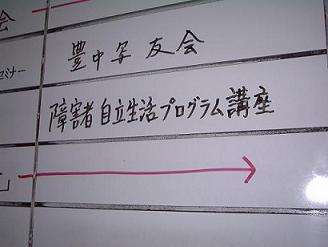 会
豊中写友会
セミナー
障害者自立生活プログラム講座